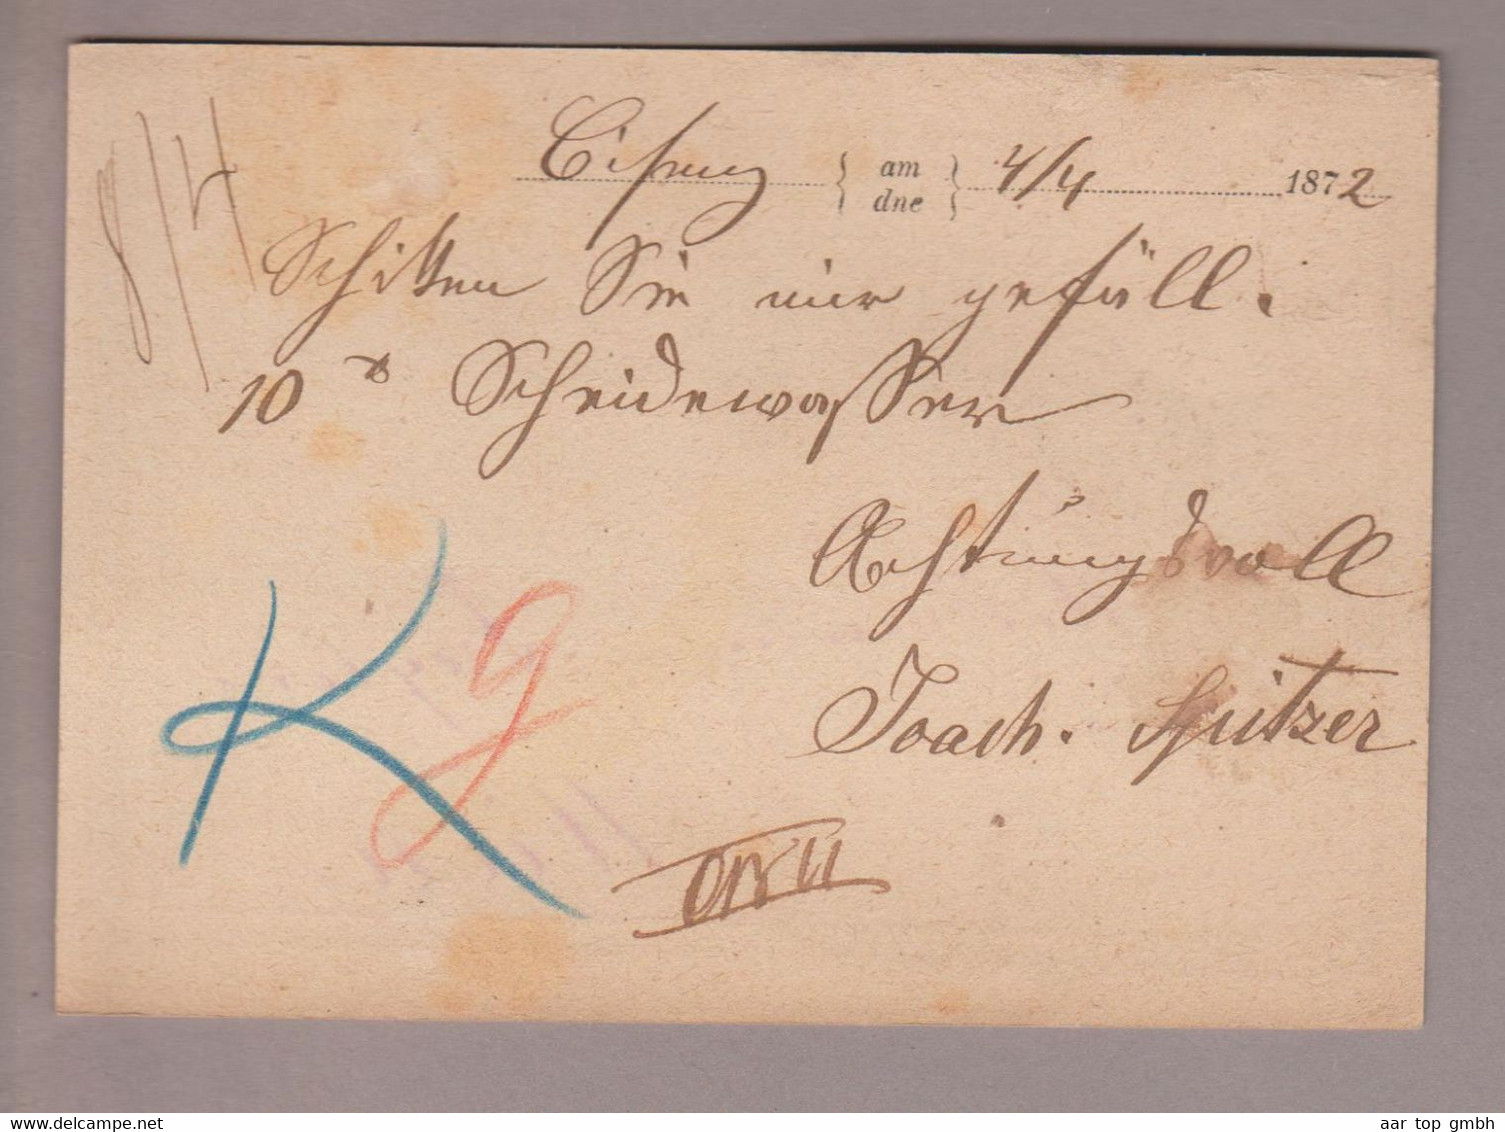 8/4
{ am dne } 4/4 1872
Schikken Sie mir gefäll.
10 ℔ Scheidewasser
Achtungsvoll
Joach. Spitzer
K
aar top gmbh
www.delcampe.net